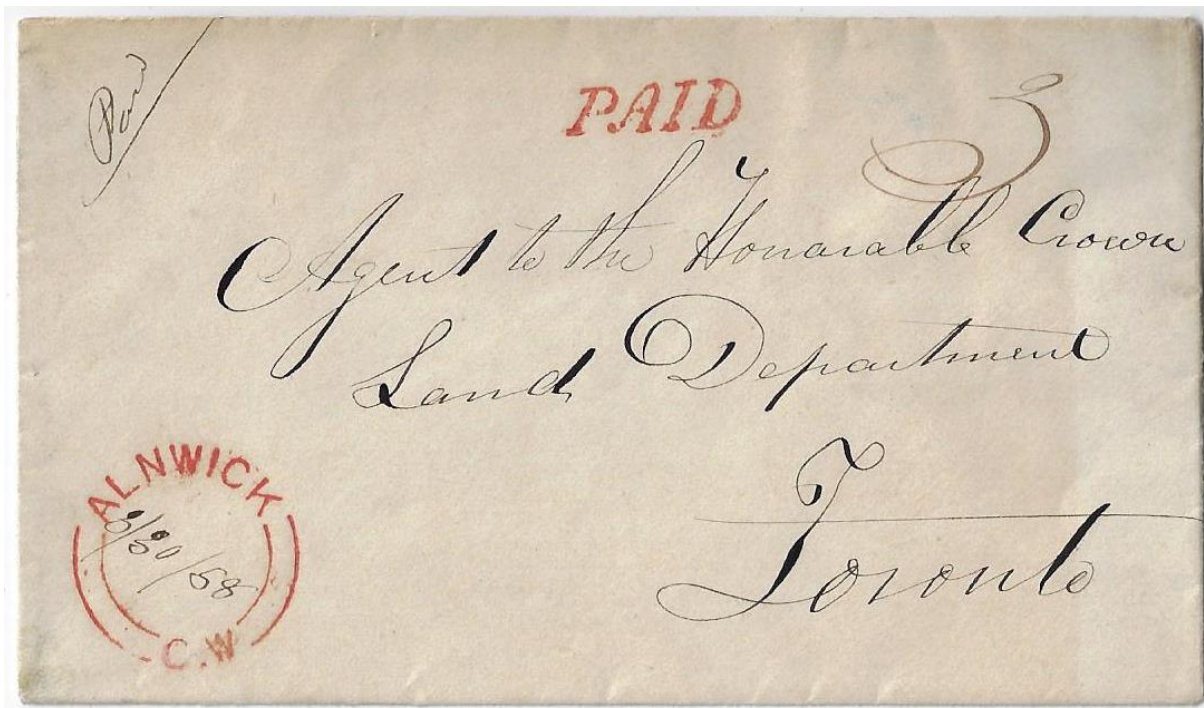 Paid
PAID
3
Agent to the Honarable Crown
Land Department
Toronto
ALNWICK
8/30/58
C.W